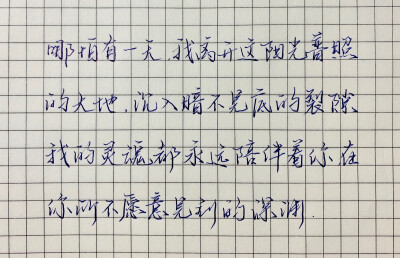 哪怕有一天,我离开这阳光普照
的大地,沉入暗不见底的裂隙
我的灵魂都永远陪伴着你,在
你所不愿意见到的深渊.